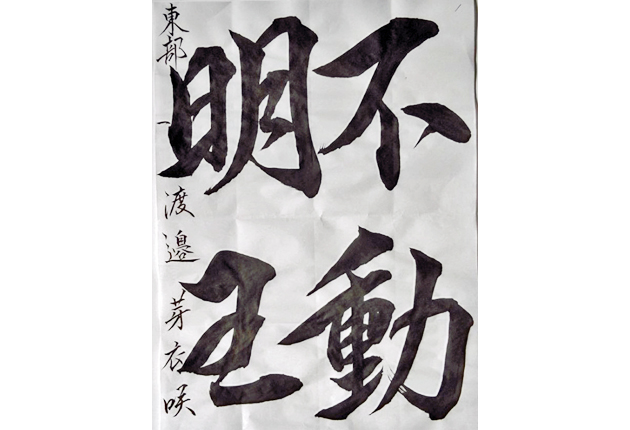 不動
明王
東部一 渡邉芽衣咲